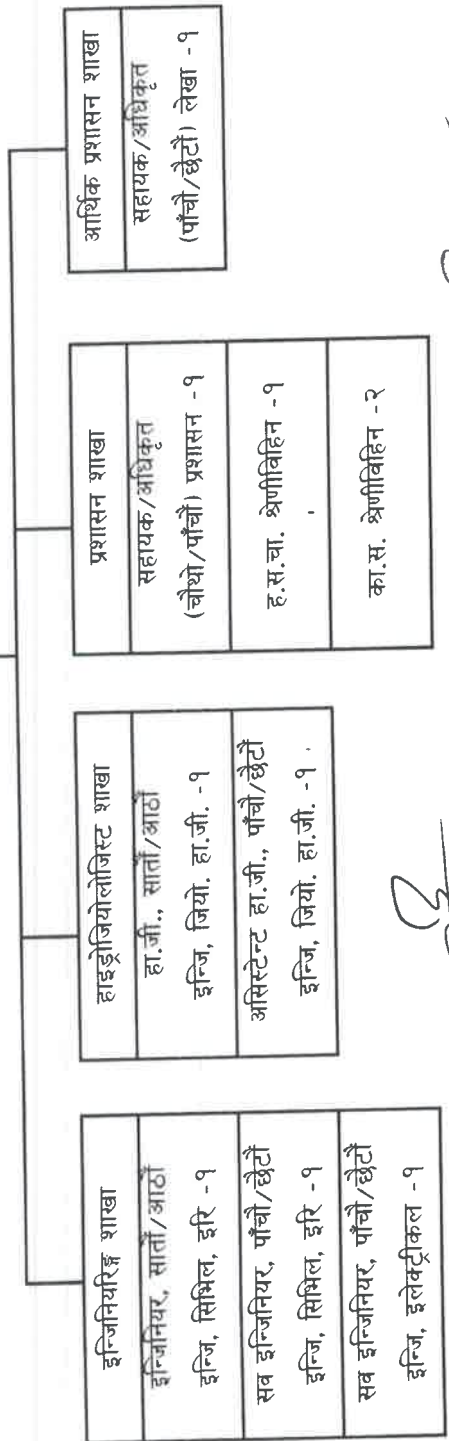 इन्जिनियरिङ्ग शाखा
इन्जिनियर, सातौं/आठौं
इन्जि, सिभिल, इरि -१
सव इन्जिनियर, पाँचौ/छैटौं
इन्जि, सिभिल, इरि -१
सव इन्जिनियर, पाँचौ/छैटौं
इन्जि, इलेक्ट्रीकल -१
हाइड्रोजियोलोजिस्ट शाखा
हा.जी., सातौं/आठौं
इन्जि, जियो. हा.जी. -१
असिस्टेन्ट हा.जी., पाँचौ/छैटौं
इन्जि, जियो. हा.जी. -१
प्रशासन शाखा
सहायक/अधिकृत
(चौथो/पाँचौं) प्रशासन -१
ह.स.चा. श्रेणीविहिन -१
का.स. श्रेणीविहिन -२
आर्थिक प्रशासन शाखा
सहायक/अधिकृत
(पाँचौ/छैटौं) लेखा -१